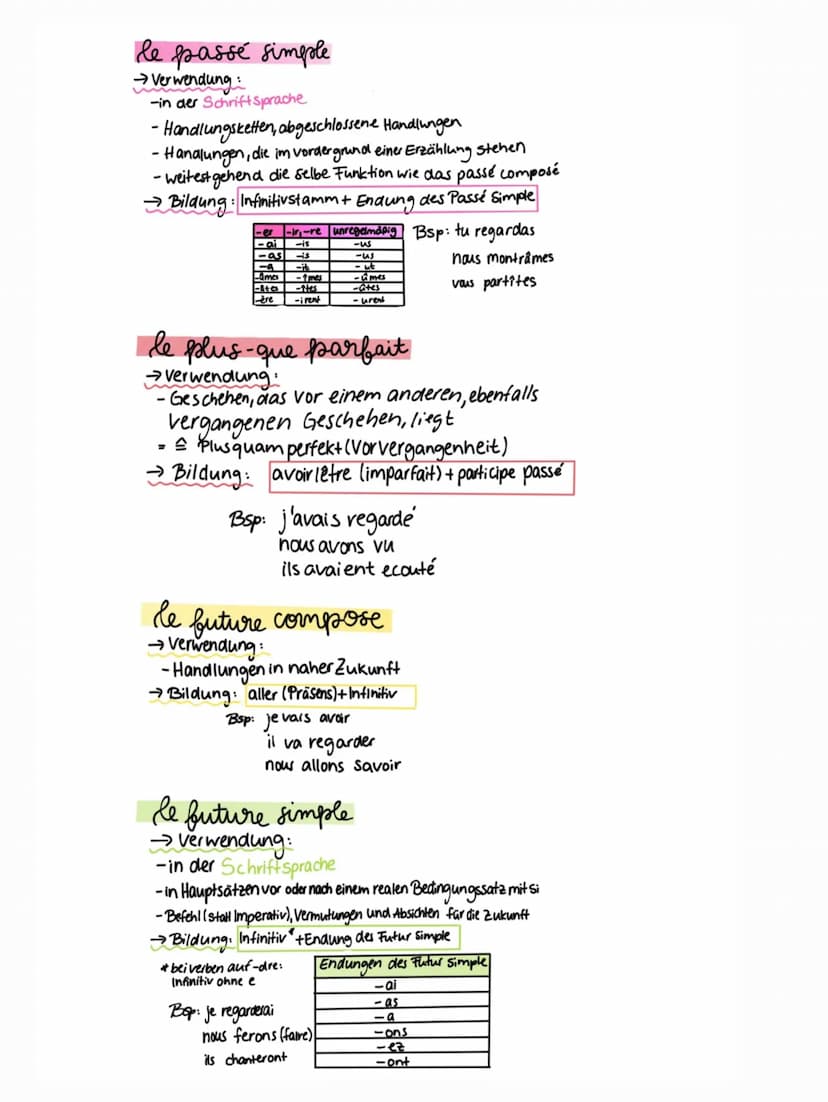 le passé simple
→ Verwendung:
-in der Schriftsprache
- Handlungsketten, abgeschlossene Handlungen
- Handlungen, die im Vordergrund einer Erzählung stehen
- weitestgehend die selbe Funktion wie das passé composé
→ Bildung: Infinitivstamm + Endung des Passé Simple
-er -ir,-re unregelmäßig
-ai -is -us
-as -is -us
-a -it -ut
-âmes -îmes -ûmes
-âtes -îtes -ûtes
-ère -irent -urent
Bsp: tu regardas
nous montrâmes
vous partîtes
le plus-que parfait
→ Verwendung:
- Geschehen, das vor einem anderen, ebenfalls
vergangenen Geschehen, liegt
= ≙ Plusquamperfekt (Vorvergangenheit)
→ Bildung: avoir/être (imparfait) + participe passé
Bsp: j'avais regardé
nous avons vu
ils avaient ecouté
le future compose
→ Verwendung:
- Handlungen in naher Zukunft
→ Bildung: aller (Präsens) + Infinitiv
Bsp: je vais avoir
il va regarder
nous allons savoir
le future simple
→ Verwendung:
-in der Schriftsprache
-in Hauptsätzen vor oder nach einem realen Bedingungssatz mit si
- Befehl (statt Imperativ), Vermutungen und Absichten für die Zukunft
→ Bildung: Infinitiv* + Endung des Futur Simple
* bei verben auf -dre:
Infinitiv ohne e
Bsp: je regarderai
nous ferons (faire)
ils chanteront
Endungen des Futur Simple
-ai
-as
-a
-ons
-ez
-ont